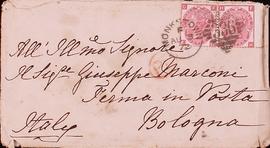 All' Illmo Signore
Il Sigre Giuseppe Marconi
Ferma in Posta
Bologna
Italy